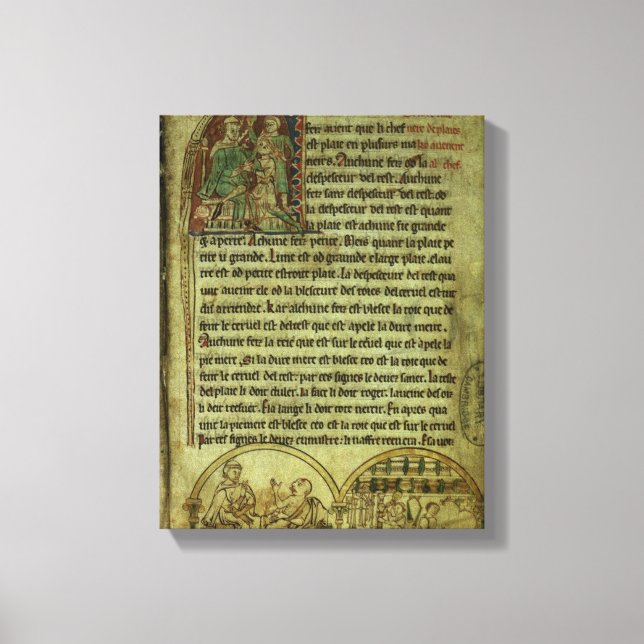 feiz avient que li chef nere de plaies
est plaie en plusurs ma ki avenent
neirs. Auchune feiz od la al chef.
despesceur del test. Auchune
feiz sanz despesceur del test. od
la despesceur del test est quant
la plaie est achune fie grande
aperte. Achune feiz petite. Meis quant la plaie pe
tite u grande. Lune est od graunde e large plaie. e lau
tre est od petite estroite plaie. La despesceur del test qua
unt avient ele od la blesceure des toies del cervel estut
dis arriendre. Kar alchune feiz est blesce la toie que de
feit le cervel del test que est apele la dure mere.
Auchune feiz la teie que est sur le cervel que est apele la
pie mere. Si la dure mere est blesce ceo est la toie que de
feit le cervel del test. par ces signes le devez saver. La teste
del plaie li doit chuler. la face li doit roger.
li doit
E la lange li doit tote nercir. E si apres qua
unt la piemere est blesce ceo est la toie que est sur le cervel
Par ces signes le devez cunuistre: li naffre E sa voiz
CAMBRIDGE